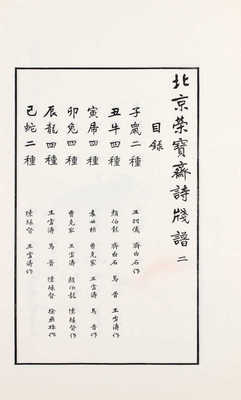 北京榮寶齋詩牋譜 二
目錄
子鼠二種 王羽儀 齊白石作
丑牛四種 顏伯龍 齊白石 馬晉 王雪濤作
寅虎四種 曹克家 王雪濤 馬晉作
卯兔四種 曹克家 王雪濤 顏伯龍 陳緣督作
辰龍四種 王雪濤 馬晉 陳緣督 徐燕孫作
巳蛇二種 陳緣督 王雪濤作